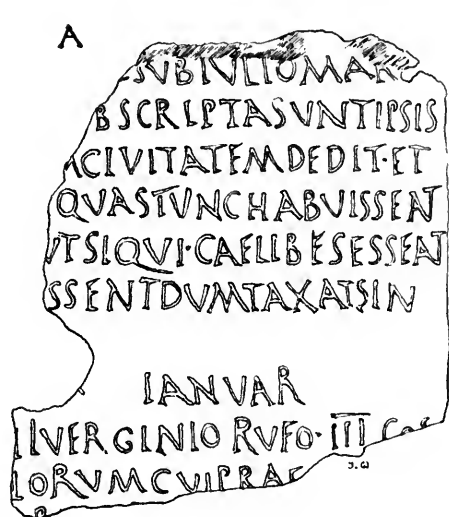 A
SUB IVLIO MARC
B SCRIPTA SVNT IPSIS
A CIVITATEM DEDIT·ET
QVAS TVNC HABVISSENT
VT SI QVI·CAELIBES ESSENT
SSENT DVMTAXAT SIN
IANVAR
II VERGINIO RVFO·III COS
LORVM CVI PRAE
J.W